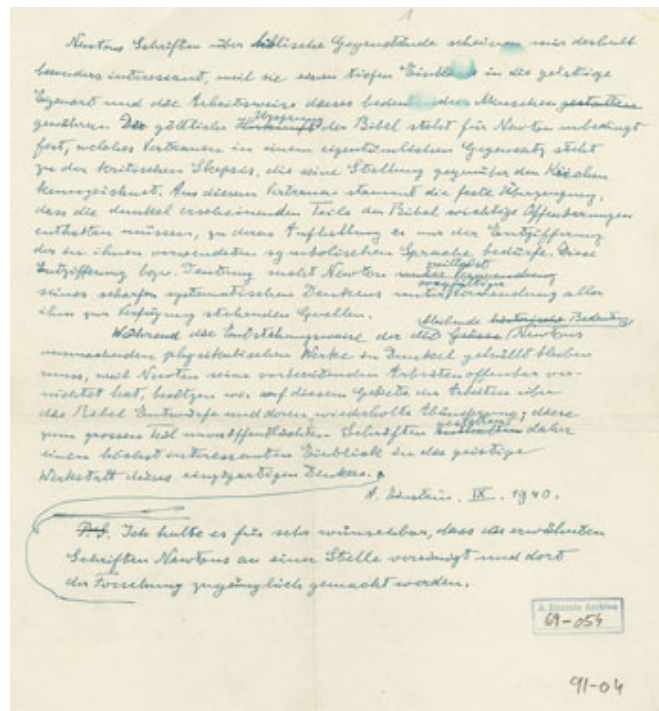 1
Newtons Schriften über biblische Gegenstände scheinen mir deshalb
besonders interessant, weil sie einen tiefen Einblick in die geistige
Eigenart und die Arbeitsweise dieses bedeutenden Menschen gestatten
gewähren. Der göttliche Herkunft Ursprung der Bibel steht für Newton unbedingt
fest, welches Vertrauen in einem eigentümlichen Gegensatz steht
zu der kritischen Skepsis, die seine Stellung gegenüber den Kirchen
kennzeichnet. Aus diesem Vertrauen stammt die feste Überzeugung,
dass die dunkel erscheinenden Teile der Bibel wichtige Offenbarungen
enthalten müssen, zu deren Aufhellung es nur der Entzifferung
der in ihnen verwendeten symbolischen Sprache bedürfe. Diese
Entzifferung bezw. Deutung sucht Newton mittelst
seines scharfen systematischen Denkens unter sorgfältiger Verwendung aller
ihm zur Verfügung stehenden Quellen.
bleibende historische Bedeutung
Während die Entstehungsweise der Newtons
physikalischen Werke in Dunkel gehüllt bleiben
muss, weil Newton seine vorbereitenden Arbeiten offenbar ver-
nichtet hat, besitzen wir auf diesem Gebiete der Arbeiten über
die Bibel Entwürfe und deren wiederholte Abänderung; diese
zum grossen Teil unveröffentlichten Schriften enthalten gestatten daher
einen höchst interessanten Einblick in die geistige
Werkstatt dieses einzigartigen Denkers.
A. Einstein. IX. 1940.
P.S. Ich halte es für sehr wünschbar, dass die erwähnten
Schriften Newtons an einer Stelle vereinigt und dort
der Forschung zugänglich gemacht werden.
A. Einstein Archive
69-054
91-04